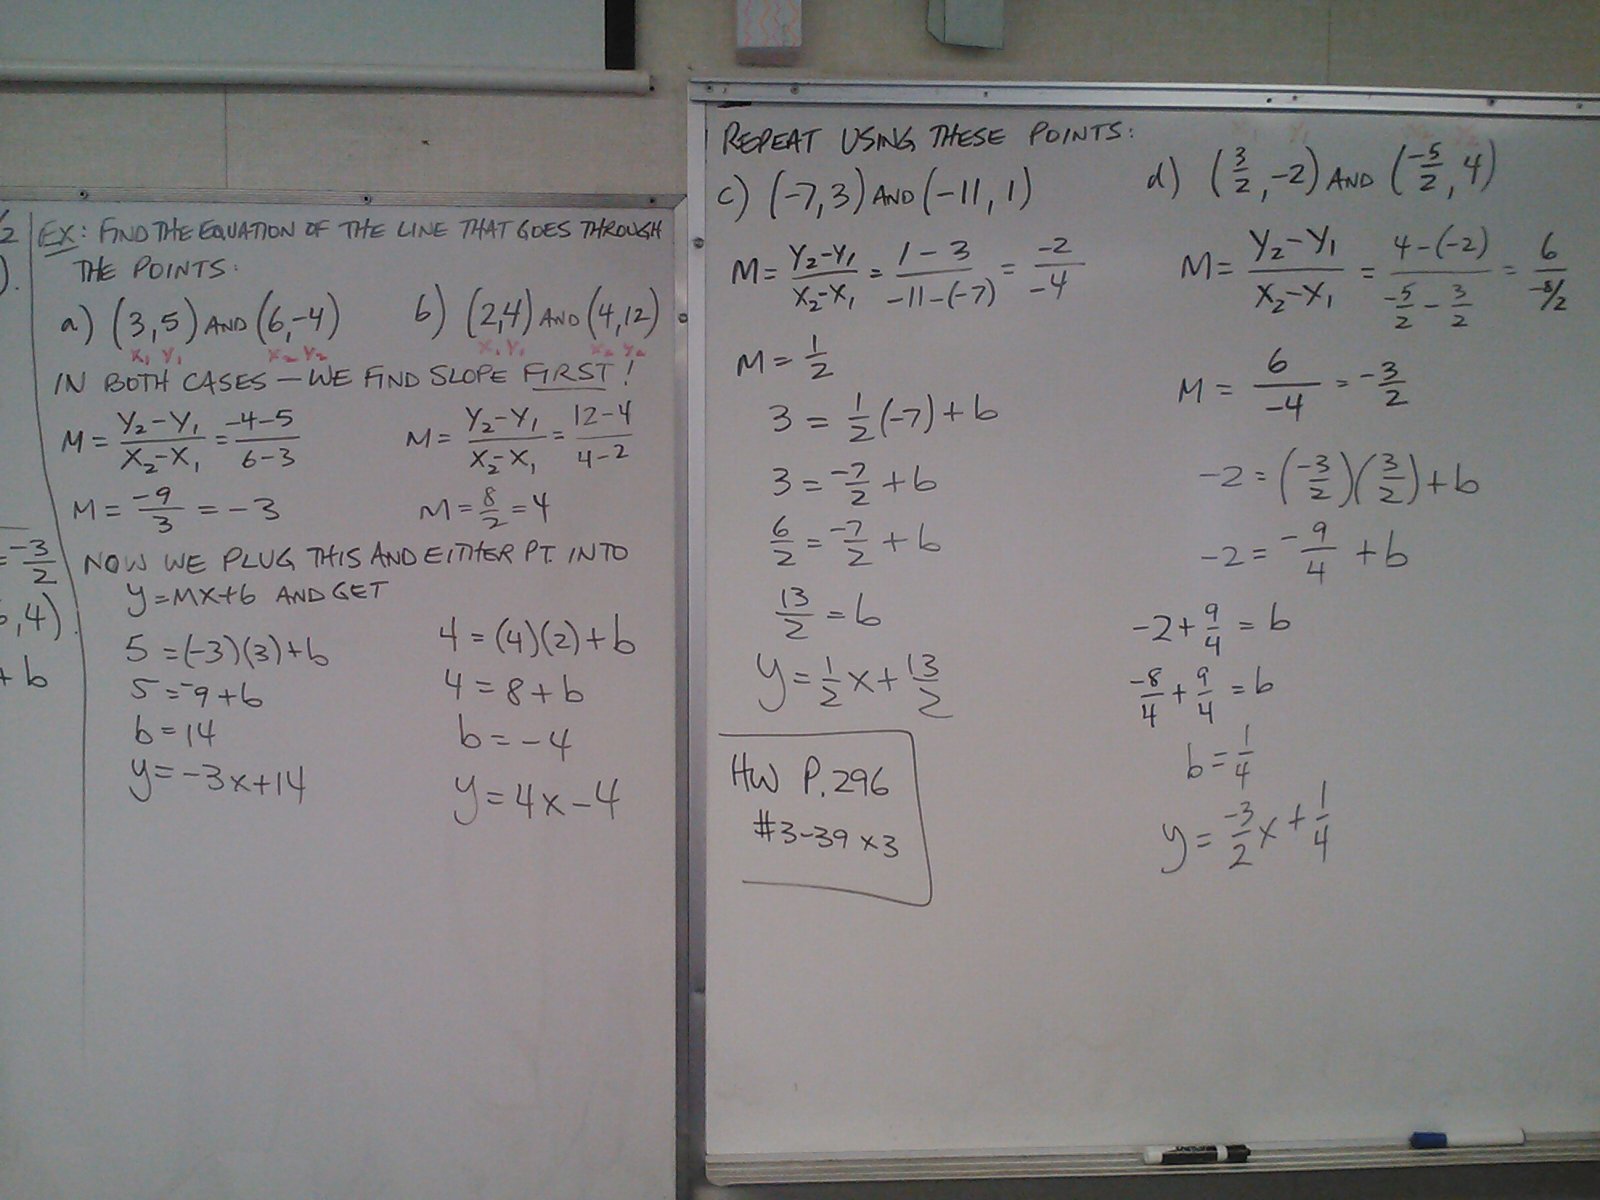 /2
).
= -3/2
, 4).
+ b
EX: FIND THE EQUATION OF THE LINE THAT GOES THROUGH
THE POINTS:
a) (3,5) AND (6,-4)
x₁ y₁ x₂ y₂
b) (2,4) AND (4,12)
x₁ y₁ x₂ y₂
IN BOTH CASES — WE FIND SLOPE FIRST!
M = (Y₂-Y₁)/(X₂-X₁) = (-4-5)/(6-3)
M = -9/3 = -3
M = (Y₂-Y₁)/(X₂-X₁) = (12-4)/(4-2)
M = 8/2 = 4
NOW WE PLUG THIS AND EITHER PT. INTO
y=MX+b AND GET
5 = (-3)(3)+b
5 = -9+b
b = 14
y = -3x+14
4 = (4)(2)+b
4 = 8+b
b = -4
y = 4x-4
REPEAT USING THESE POINTS:
c) (-7,3) AND (-11, 1)
M = (Y₂-Y₁)/(X₂-X₁) = (1-3)/(-11-(-7)) = -2/-4
M = 1/2
3 = 1/2(-7)+b
3 = -7/2 + b
6/2 = -7/2 + b
13/2 = b
y = 1/2x + 13/2
HW P. 296
#3-39 x3
d) (3/2, -2) AND (-5/2, 4)
M = (Y₂-Y₁)/(X₂-X₁) = (4-(-2))/(-5/2 - 3/2) = 6/(-8/2)
M = 6/-4 = -3/2
-2 = (-3/2)(3/2)+b
-2 = -9/4 + b
-2 + 9/4 = b
-8/4 + 9/4 = b
b = 1/4
y = -3/2x + 1/4